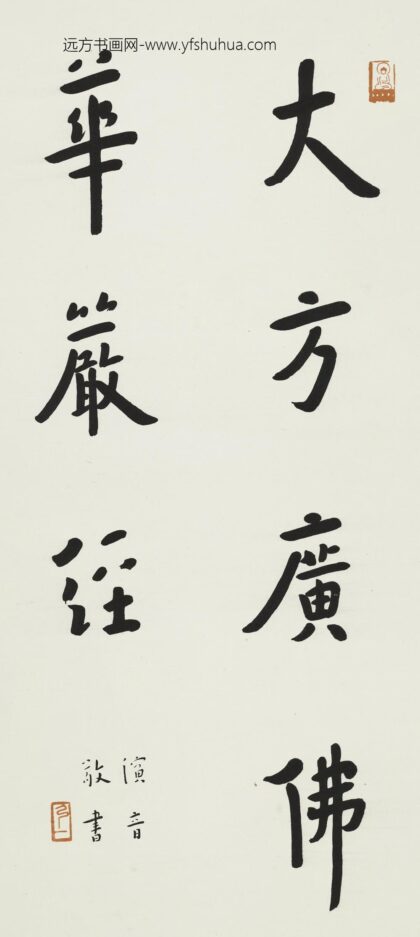 远方书画网-www.yfshuhua.com
大方廣佛
華嚴經
演音
敬書